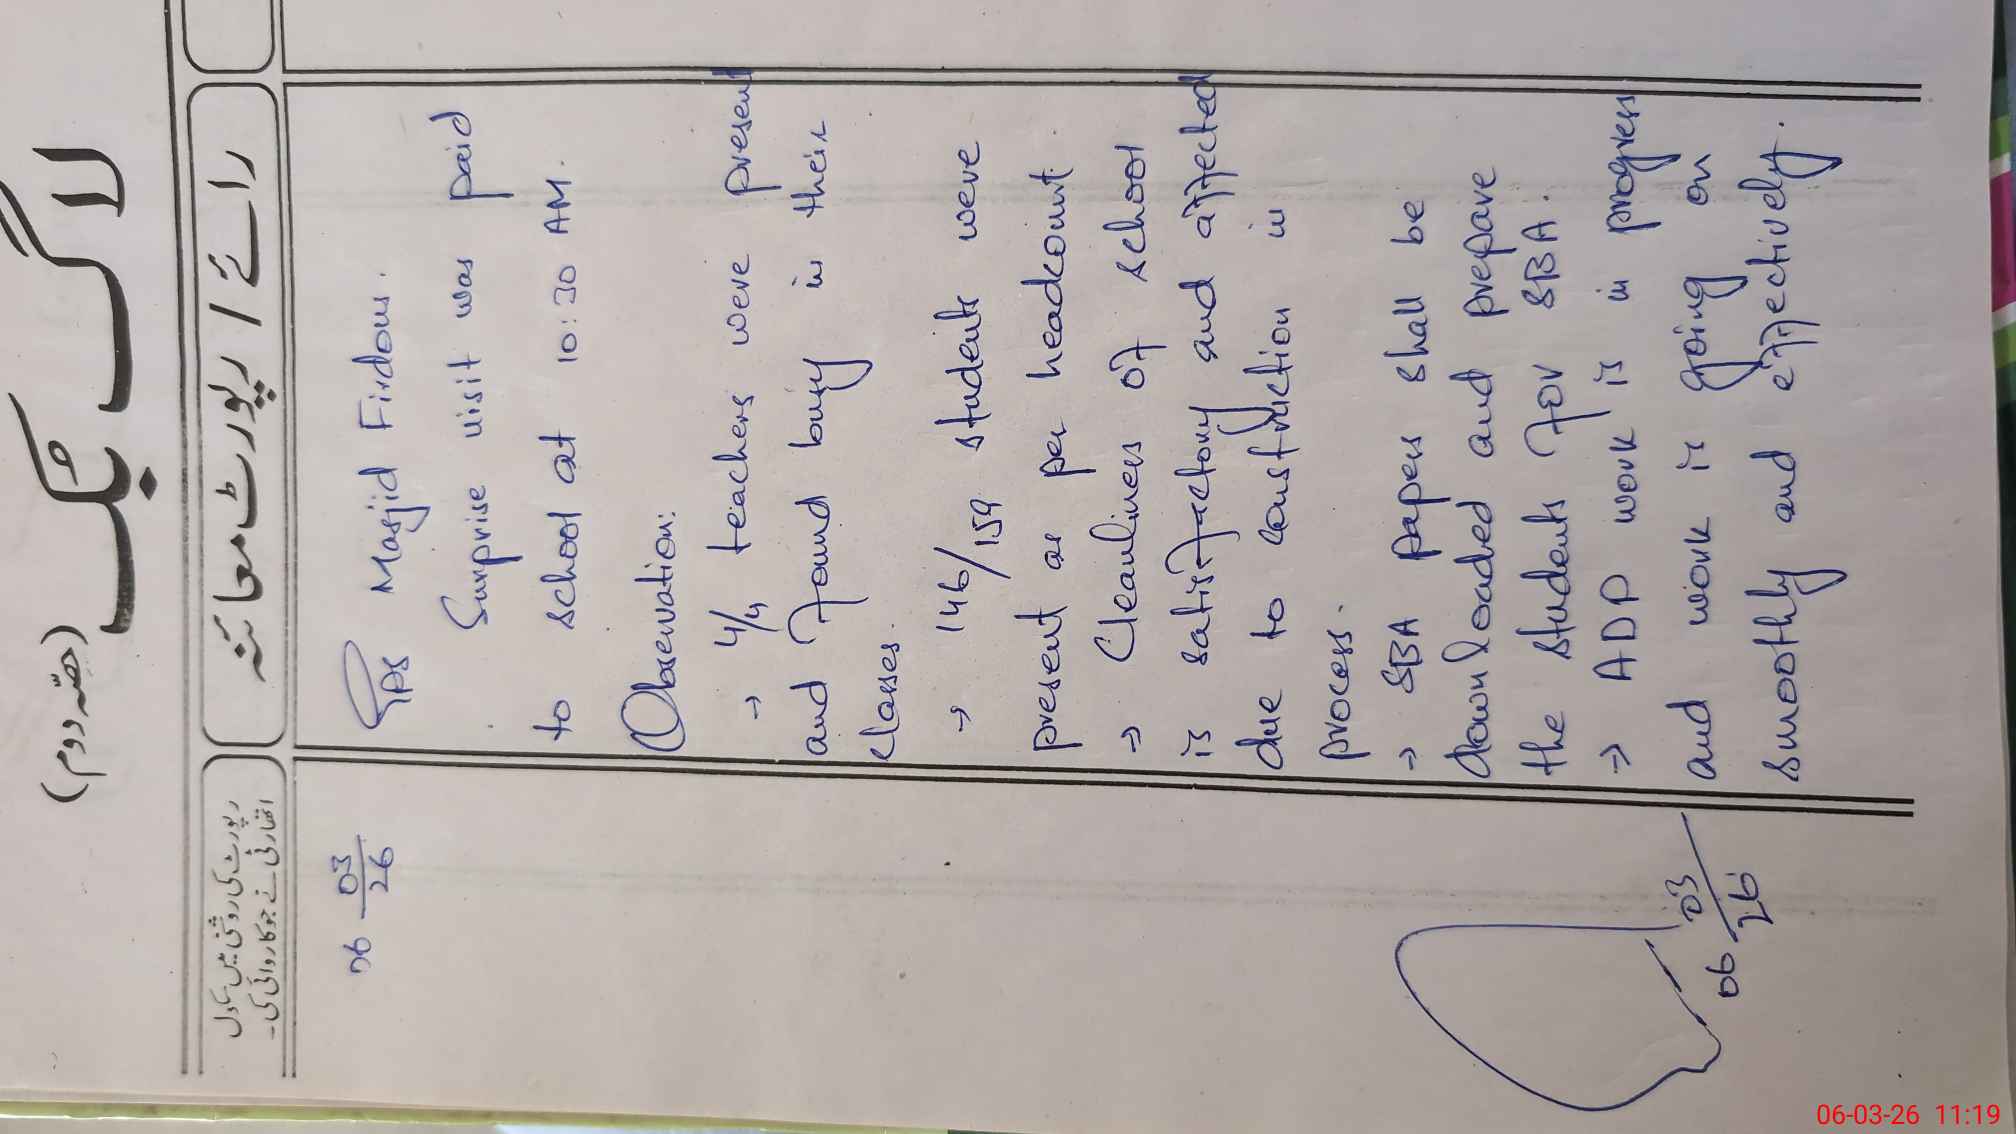 لاگ بک
(حصّہ دوم)
رائے / رپورٹ معائنہ
رپورٹ کی روشنی میں مادل
اتھارٹی نے جو کاروائی کی۔
06 03/26
GPS Masjid Firdous.
Surprise visit was paid
to school at 10:30 AM.
Observation:
→ 4/4 teachers were present
and found busy in their
classes.
→ 146/159 students were
present as per headcount
→ Cleanliness of school
is satisfactory and affected
due to construction in
process.
→ SBA papers shall be
downloaded and prepare
the students for SBA.
→ ADP work is in progress
and work is going on
smoothly and effectively.
06 03/26
06-03-26 11:19